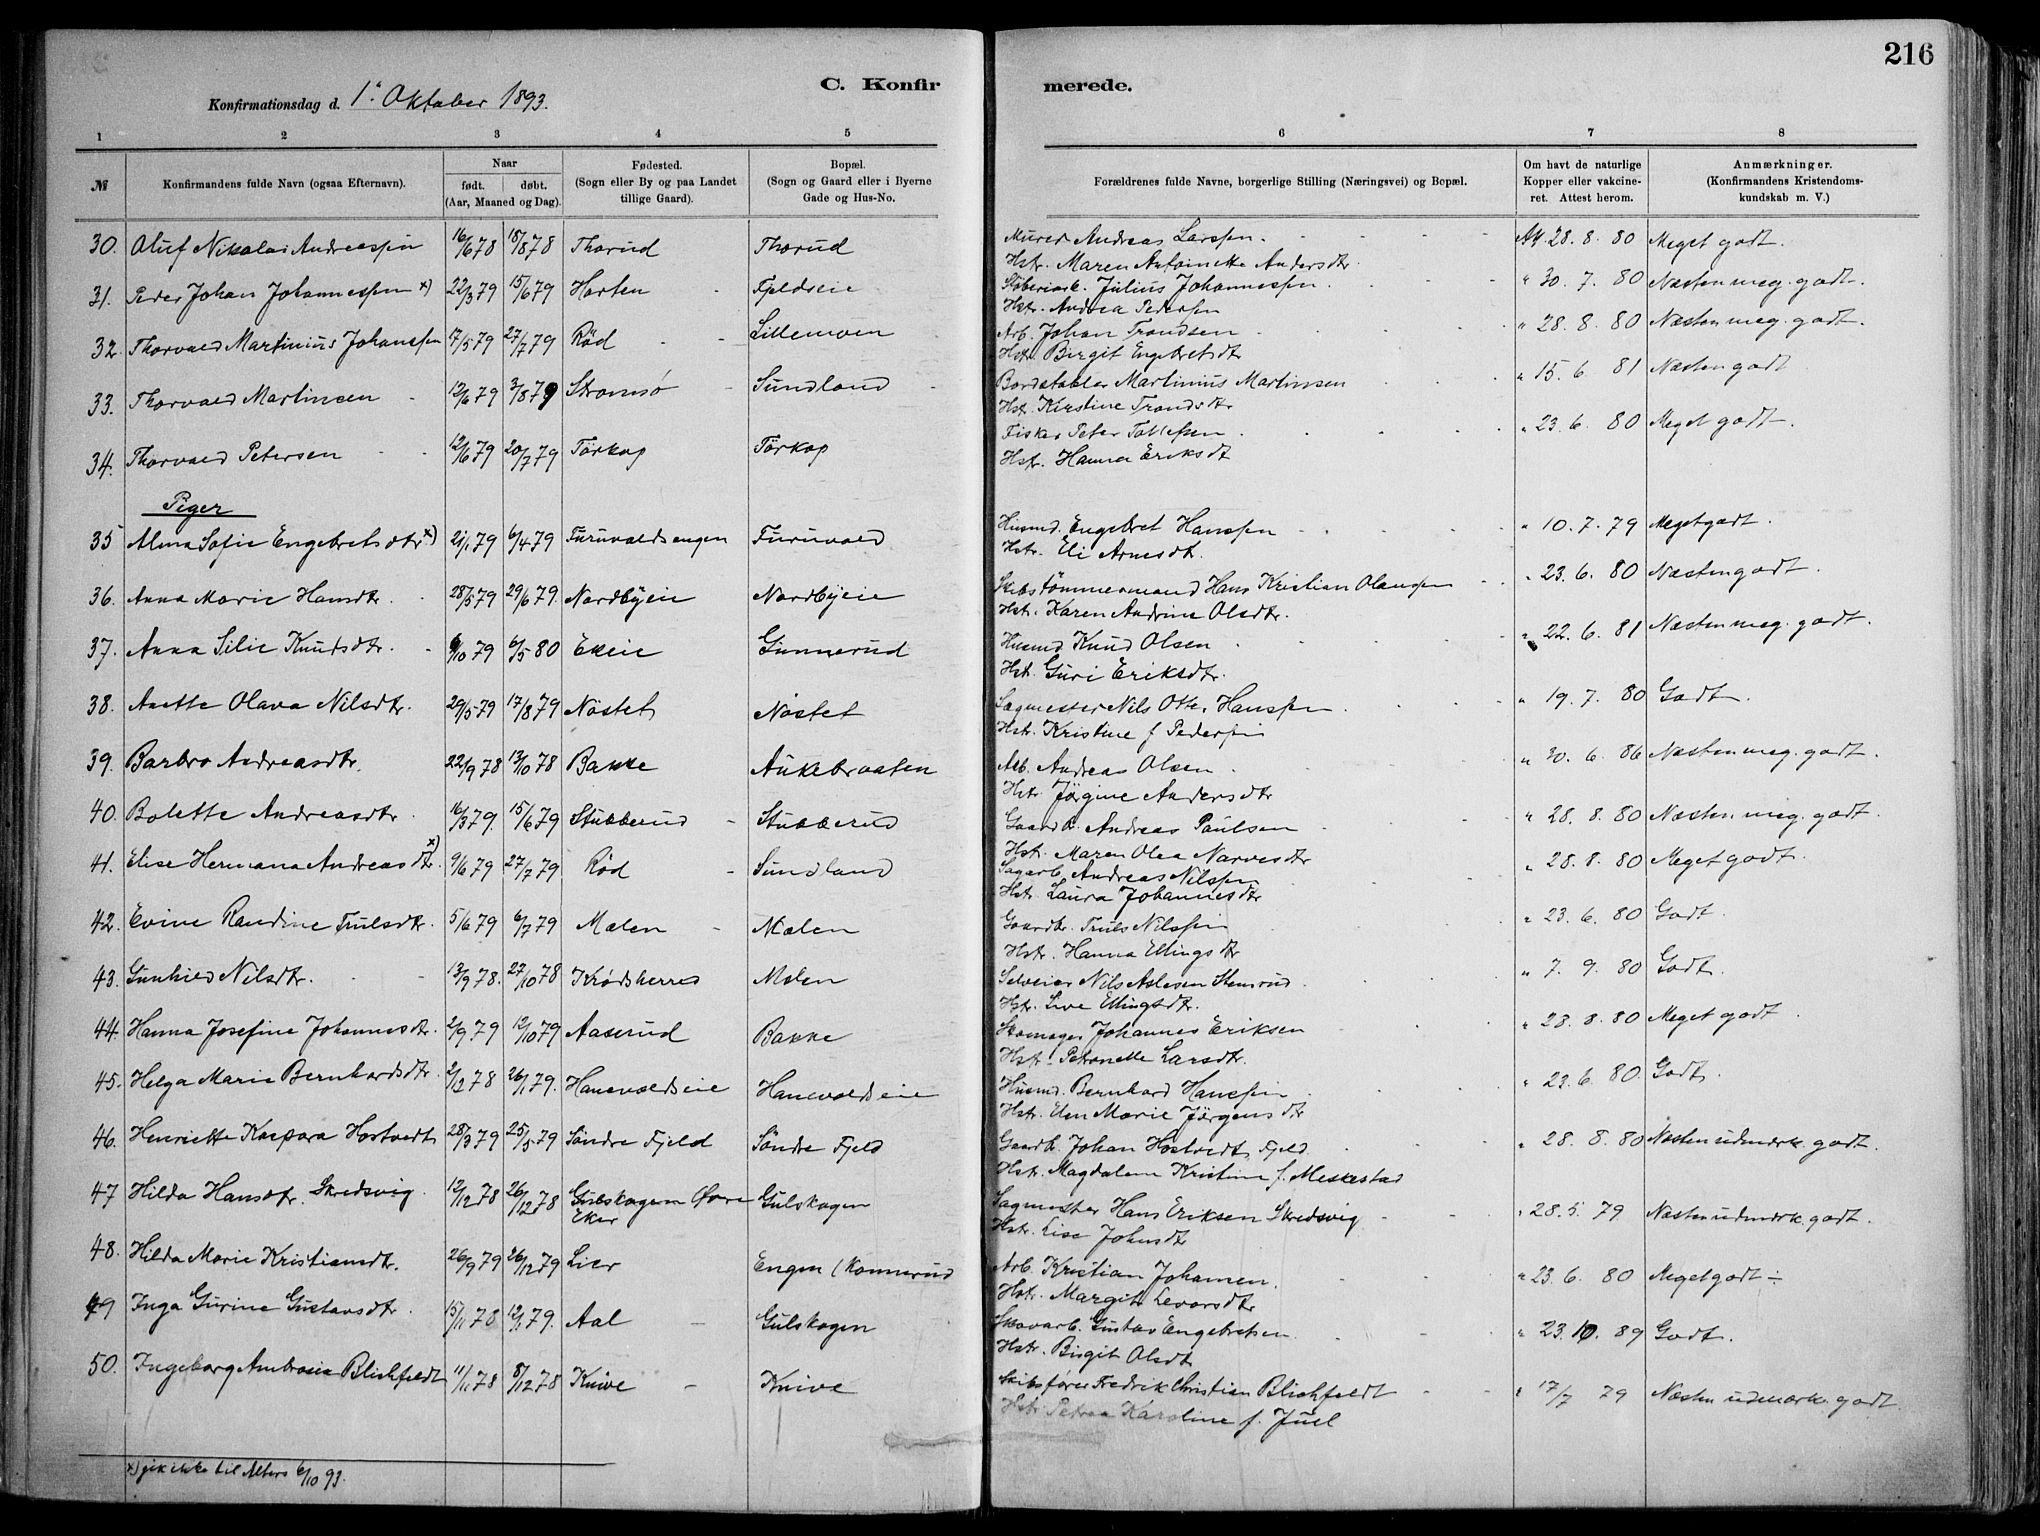 216
C. Konfir
merede.
Konfirmationsdag d. 1ste Oktober 1893.
1 2 3 4 5 6 7 8
№ Konfirmandens fulde Navn (ogsaa Efternavn). Naar født. døbt. (Aar, Maaned og Dag). Fødested. (Sogn eller By og paa Landet tillige Gaard). Bopæl. (Sogn og Gaard eller i Byerne Gade og Hus-No. Forældrenes fulde Navne, borgerlige Stilling (Næringsvei) og Bopæl. Om havt de naturlige Kopper eller vakcineret. Attest herom. Anmærkninger. (Konfirmandens Kristendomskundskab m. V.)
30. Oluf Nikolai Andreassen 16/6 78 18/8 78 Thorud Thorud Murer Andreas Larssen. Att. 28. 8. 80 Meget godt.
Hstr. Maren Antoinette Andersdtr.
31. Peder Johan Johannessen x) 22/3 79 15/6 79 Horten Fjeldseie Støberiarb. Julius Johannessen. " 30. 7. 80 Næsten meg. godt.
Hstr. Andrea Pedersen
32. Thorvald Martinius Johanssen 17/5 79 27/7 79 Rød Lillemoen Arb. Johan Trondsen " 28. 8. 80 Næsten meg. godt.
Hstr. Birgit Engebretsdtr
33. Thorvald Martinsen 12/6 79 3/8 79 Strømsø Sundland Bordstabler Martinius Martinsen " 15. 6. 81 Næsten godt
Hst. Kirstine Trondsdtr
34. Thorvald Petersen 12/6 79 20/7 79 Tørkop Tørkop Fisker Peter Tollefsen " 23. 6. 80 Meget godt.
Hstr. Hanna Eriksdt
Piger
35 Alma Sofie Engebretsdtr x) 21/1 79 6/4 79 Furuvaldsengen Furuvald Husmd. Engebret Hanssen " 10. 7. 79 Meget godt.
Hstr. Eli Arnesdt.
36. Anna Marie Hansdtr. 28/5 79 29/6 79. Nordbyeie Nordbyeie Skibstømmermand Hans Kristian Olaussen " 23. 6. 80 Næsten godt.
Hstr. Karen Andrine Olsdtr.
37. Anna Silie Knudsdtr. 9/10 79 6/5 80 Ekeie Gunnerud Husmd Knud Olsen " 22. 6. 81 Næsten meg. godt.
Hst. Guri Eriksdtr.
38. Anette Olava Nilsdtr. 29/5 79 17/8 79 Nøstet Nøstet Sagmester Nils Otto Hanssen " 19. 7. 80 Godt.
Hst. Kristine f Pedersen
39. Barbro Andreasdtr. 22/9 78 13/10 78 Bakke Aukebraaten Arb. Andreas Olsen " 30. 6. 86 Næsten meg. godt.
Hstr. Jørgine Andersdtr
40. Bolette Andreasdtr. 16/3 79. 15/6 79 Stubberud Stubberud Gaardb. Andreas Paulsen " 28. 8. 80 Næsten meg. godt.
Hstr. Maren Olea Narvesdtr
41. Elise Hermana Andreasdtr x) 9/6 79 27/7 79 Rød Sundland Sagarb. Andreas Nilssen " 28. 8. 80 Meget godt.
Hst. Laura Johannesdtr
42. Evine Randine Trulsdtr. 5/6 79 6/7 79 Mælen Mælen Gaardbr. Truls Nilssen " 23. 6. 80 Godt.
Hstr. Hanna Ellingsdtr
43. Gunhild Nilsdtr. 13/9 78. 27/10 78 Krødsherred Mælen Selveier Nils Aslesen Stenrud. " 7. 9. 80 Godt.
Hst. Live Ellingsdtr.
44. Hanna Josefine Johannesdtr. 2/9 79 12/10 79 Aaserud Bakke Skomager Johannes Eriksen " 28. 8. 80 Meget godt
Hst. Petronelle Larsdtr.
45. Helga Marie Bernhardsdtr. 2/12 78 26/1 79. Hanevoldseie Hanevoldseie Husmd. Bernhard Hanssen " 23. 6. 80. Godt.
Hstr. Elen Marie Jørgensdtr
46. Henriette Kaspara Hostvedt 28/3 79 25/5 79 Søndre Fjeld Søndre Fjeld Gaardb. Johan Hostvedt, Fjeld " 28. 8. 80 Næsten udmærk. godt.
Hst. Magdalena Kristine f. Meskestad
47 Hilda Hansdtr. Skredsvig. 12/12 78 26/12 78 Gulskogen Øvre Eker Gulskogen Sagmester Hans Eriksen Skredsvig " 28. 5. 79 Næsten udmærk. godt.
Hstr. Lise Johnsdtr
48. Hilda Marie Kristiansdtr. 26/9 79 26/12 79 Lier Engen (Konnerud Arb. Kristian Johansen. " 23. 6. 80 Meget godt ÷
Hstr. Margit Levorsdtr
49 Inga Gurine Gustavsdtr. 15/11 78 12/1 79. Aal Gulskogen Skovarb. Gustav Engebretsen " 23. 10. 89 Godt.
Hstr. Birgit Olsdt
50. Ingeborg Ambrosia Blichfeldt 11/11 78 8/12 78 Knive Knive Skibsfører Fredrik Christian Blichfeldt " 17/7 79 Næsten udmærk. godt
Hstr. Petrea Karoline f. Juel
x) gik ikke til Alters 6/10 93.